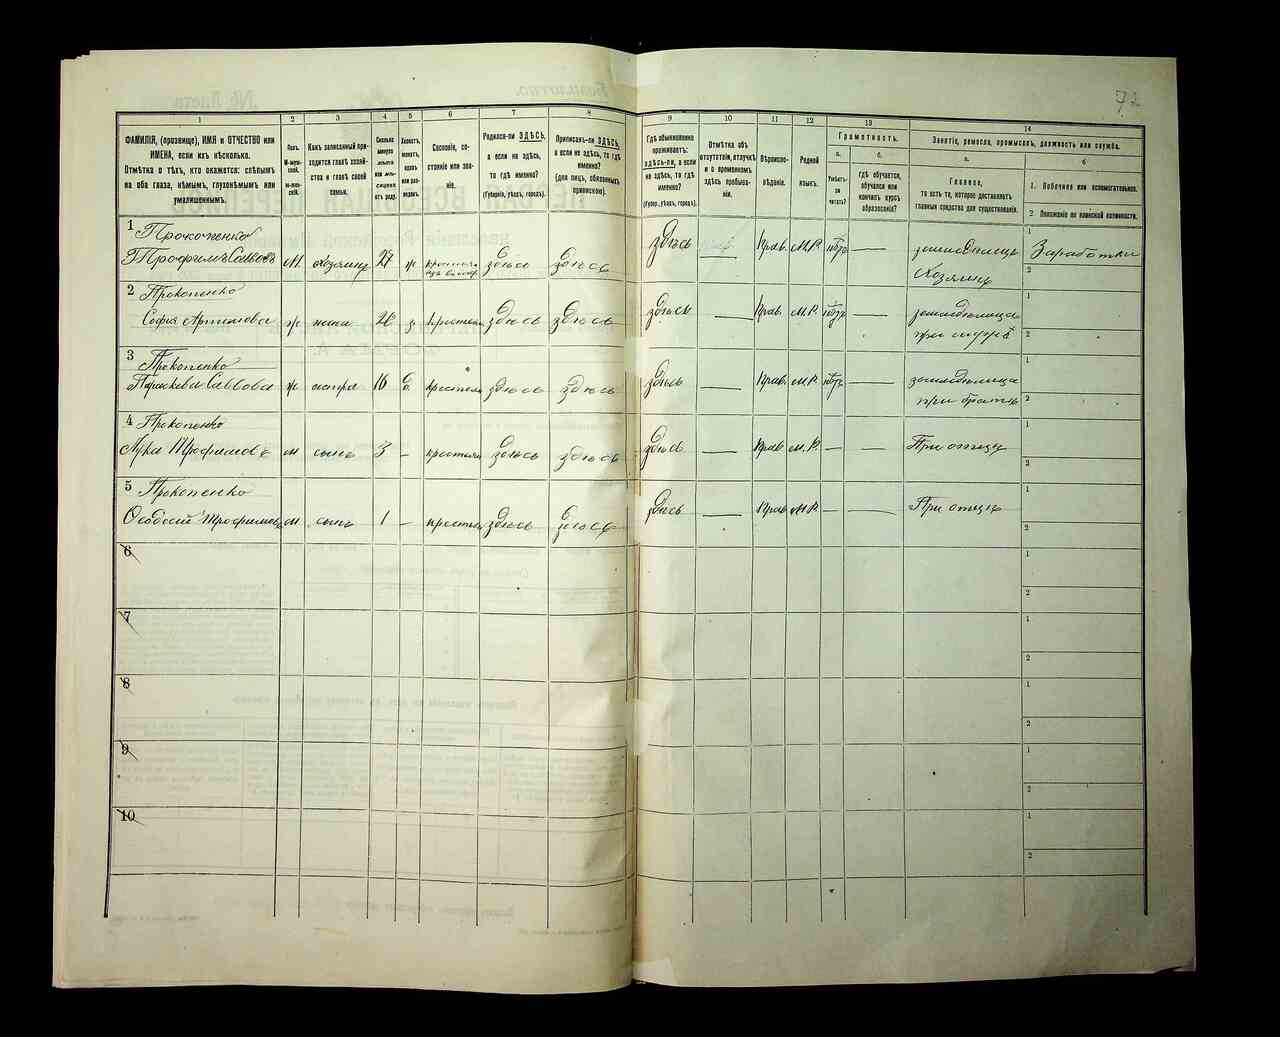 72
1
2
3
4
5
6
7
8
9
10
11
12
13
14
ФАМИЛІЯ, (прозвище), ИМЯ и ОТЧЕСТВО или
ИМЕНА, если ихъ нѣсколько.
Отмѣтка о тѣхъ, кто окажется: слѣпымъ
на оба глаза, нѣмымъ, глухонѣмымъ или
умалишеннымъ.
Полъ.
М-муж-
ской.
Ж-жен-
скій.
Какъ записанный при-
ходится главѣ хозяй-
ства и главѣ своей
семьи.
Сколько
минуло
лѣтъ
или мѣ-
сяцевъ
отъ роду.
Холостъ,
женатъ,
вдовъ
или раз-
веденъ.
Сословіе, со-
стояніе или зва-
ніе.
Родился-ли ЗДѢСЬ,
а если не здѣсь,
то гдѣ именно?
(Губернія, уѣздъ, городъ).
Приписанъ-ли ЗДѢСЬ,
а если не здѣсь, то гдѣ
именно?
(для лицъ, обязанныхъ
припискою).
Гдѣ обыкновенно
проживаетъ:
здѣсь-ли, а если
не здѣсь, то гдѣ
именно?
(Губер., уѣздъ, городъ).
Отмѣтка объ
отсутствіи, отлучкѣ
и о временномъ
здѣсь пребыва-
ніи.
Вѣроиспо-
вѣданіе.
Родной
языкъ.
Грамотность.
а.
б.
Умѣетъ-
ли
читать?
гдѣ обучается,
обучался или
кончилъ курсъ
образованія?
Занятіе, ремесло, промыселъ, должность или служба.
а.
б
Главное,
то есть то, которое доставляетъ
главныя средства для существованія.
1. Побочное или вспомогательное.
2. Положеніе по воинской повинности.
1 Прокопенко
Трофимъ Саввовъ м. хозяинъ 27 ж здѣсь здѣсь здѣсь — Прав. М.Р. — Заработки
Хозяинъ
2 Прокопенко
София Артимова ж жена 20 з. здѣсь здѣсь здѣсь — Прав. М.Р. —
при мужѣ
3 Прокопенко
Параскева Саввова ж сестра 16 здѣсь здѣсь здѣсь — Прав. М.Р. —
при братѣ
4 Прокопенко
Трофимовъ м сынъ 3 — здѣсь здѣсь здѣсь — Прав М.Р. — — При отцу
5 Прокопенко
Трофимовъ м сынъ 1 — здѣсь здѣсь здѣсь — Прав М.Р. — — При отцу
6
7
8
9
10